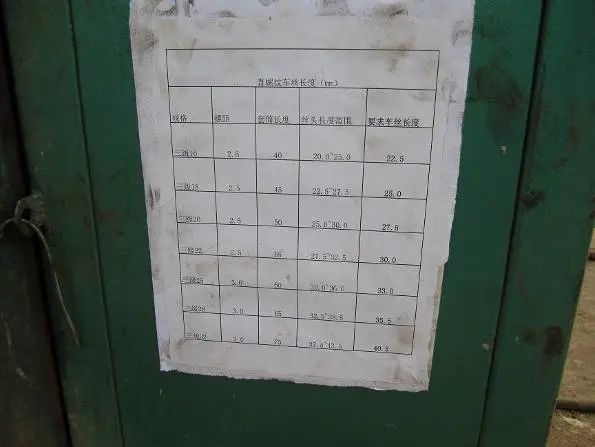 直螺纹车丝长度（mm）
规格 螺距 套筒长度 丝头长度范围 要求车丝长度
三级16 2.5 40 20.0~25.0 22.5
三级18 2.5 45 22.5~27.5 25.0
三级20 2.5 50 25.0~30.0 27.5
三级22 2.5 55 27.5~32.5 30.0
三级25 3.0 60 30.0~36.0 33.0
三级28 3.0 65 32.5~38.5 35.5
三级32 3.0 75 37.5~43.5 40.5